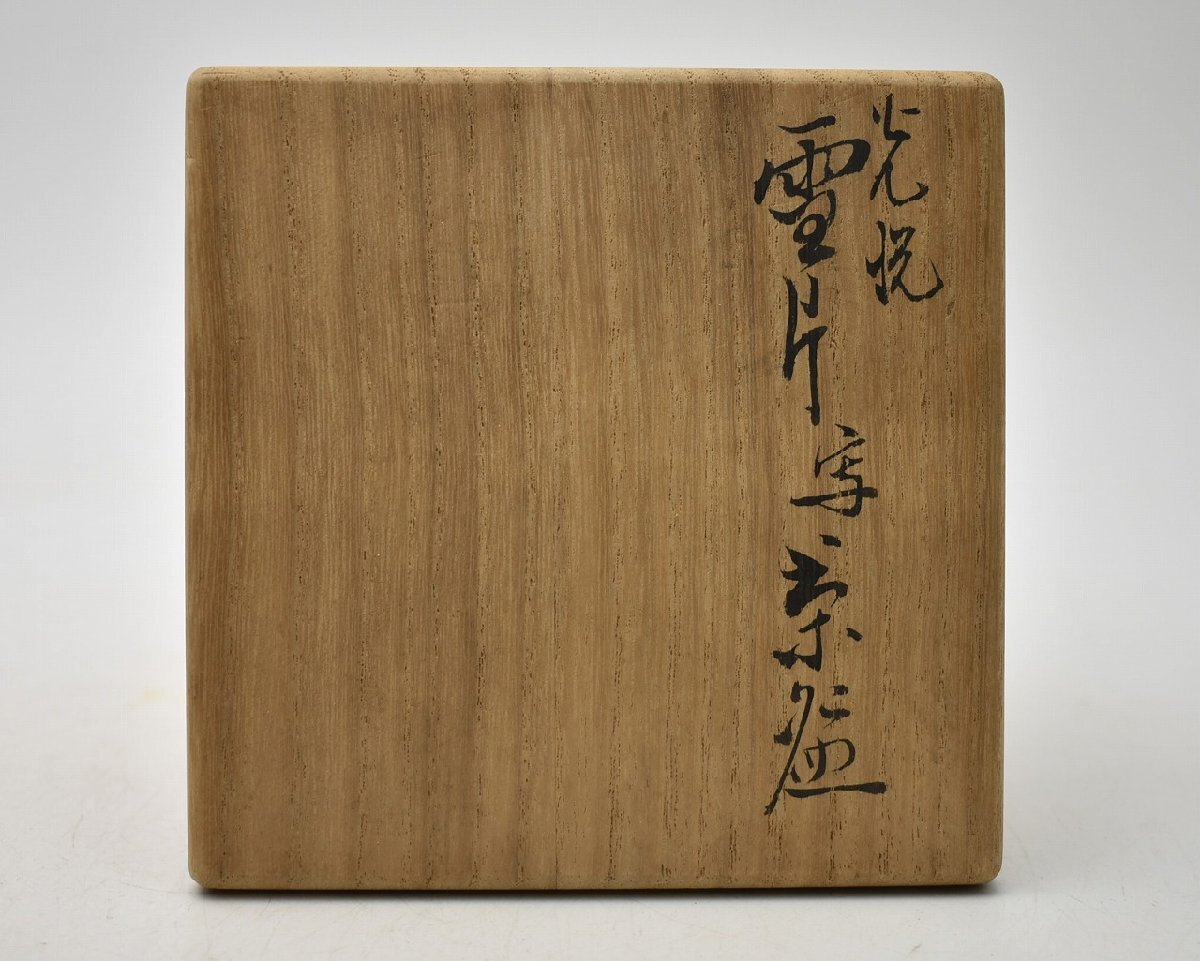 光悦
雪片写茶盌